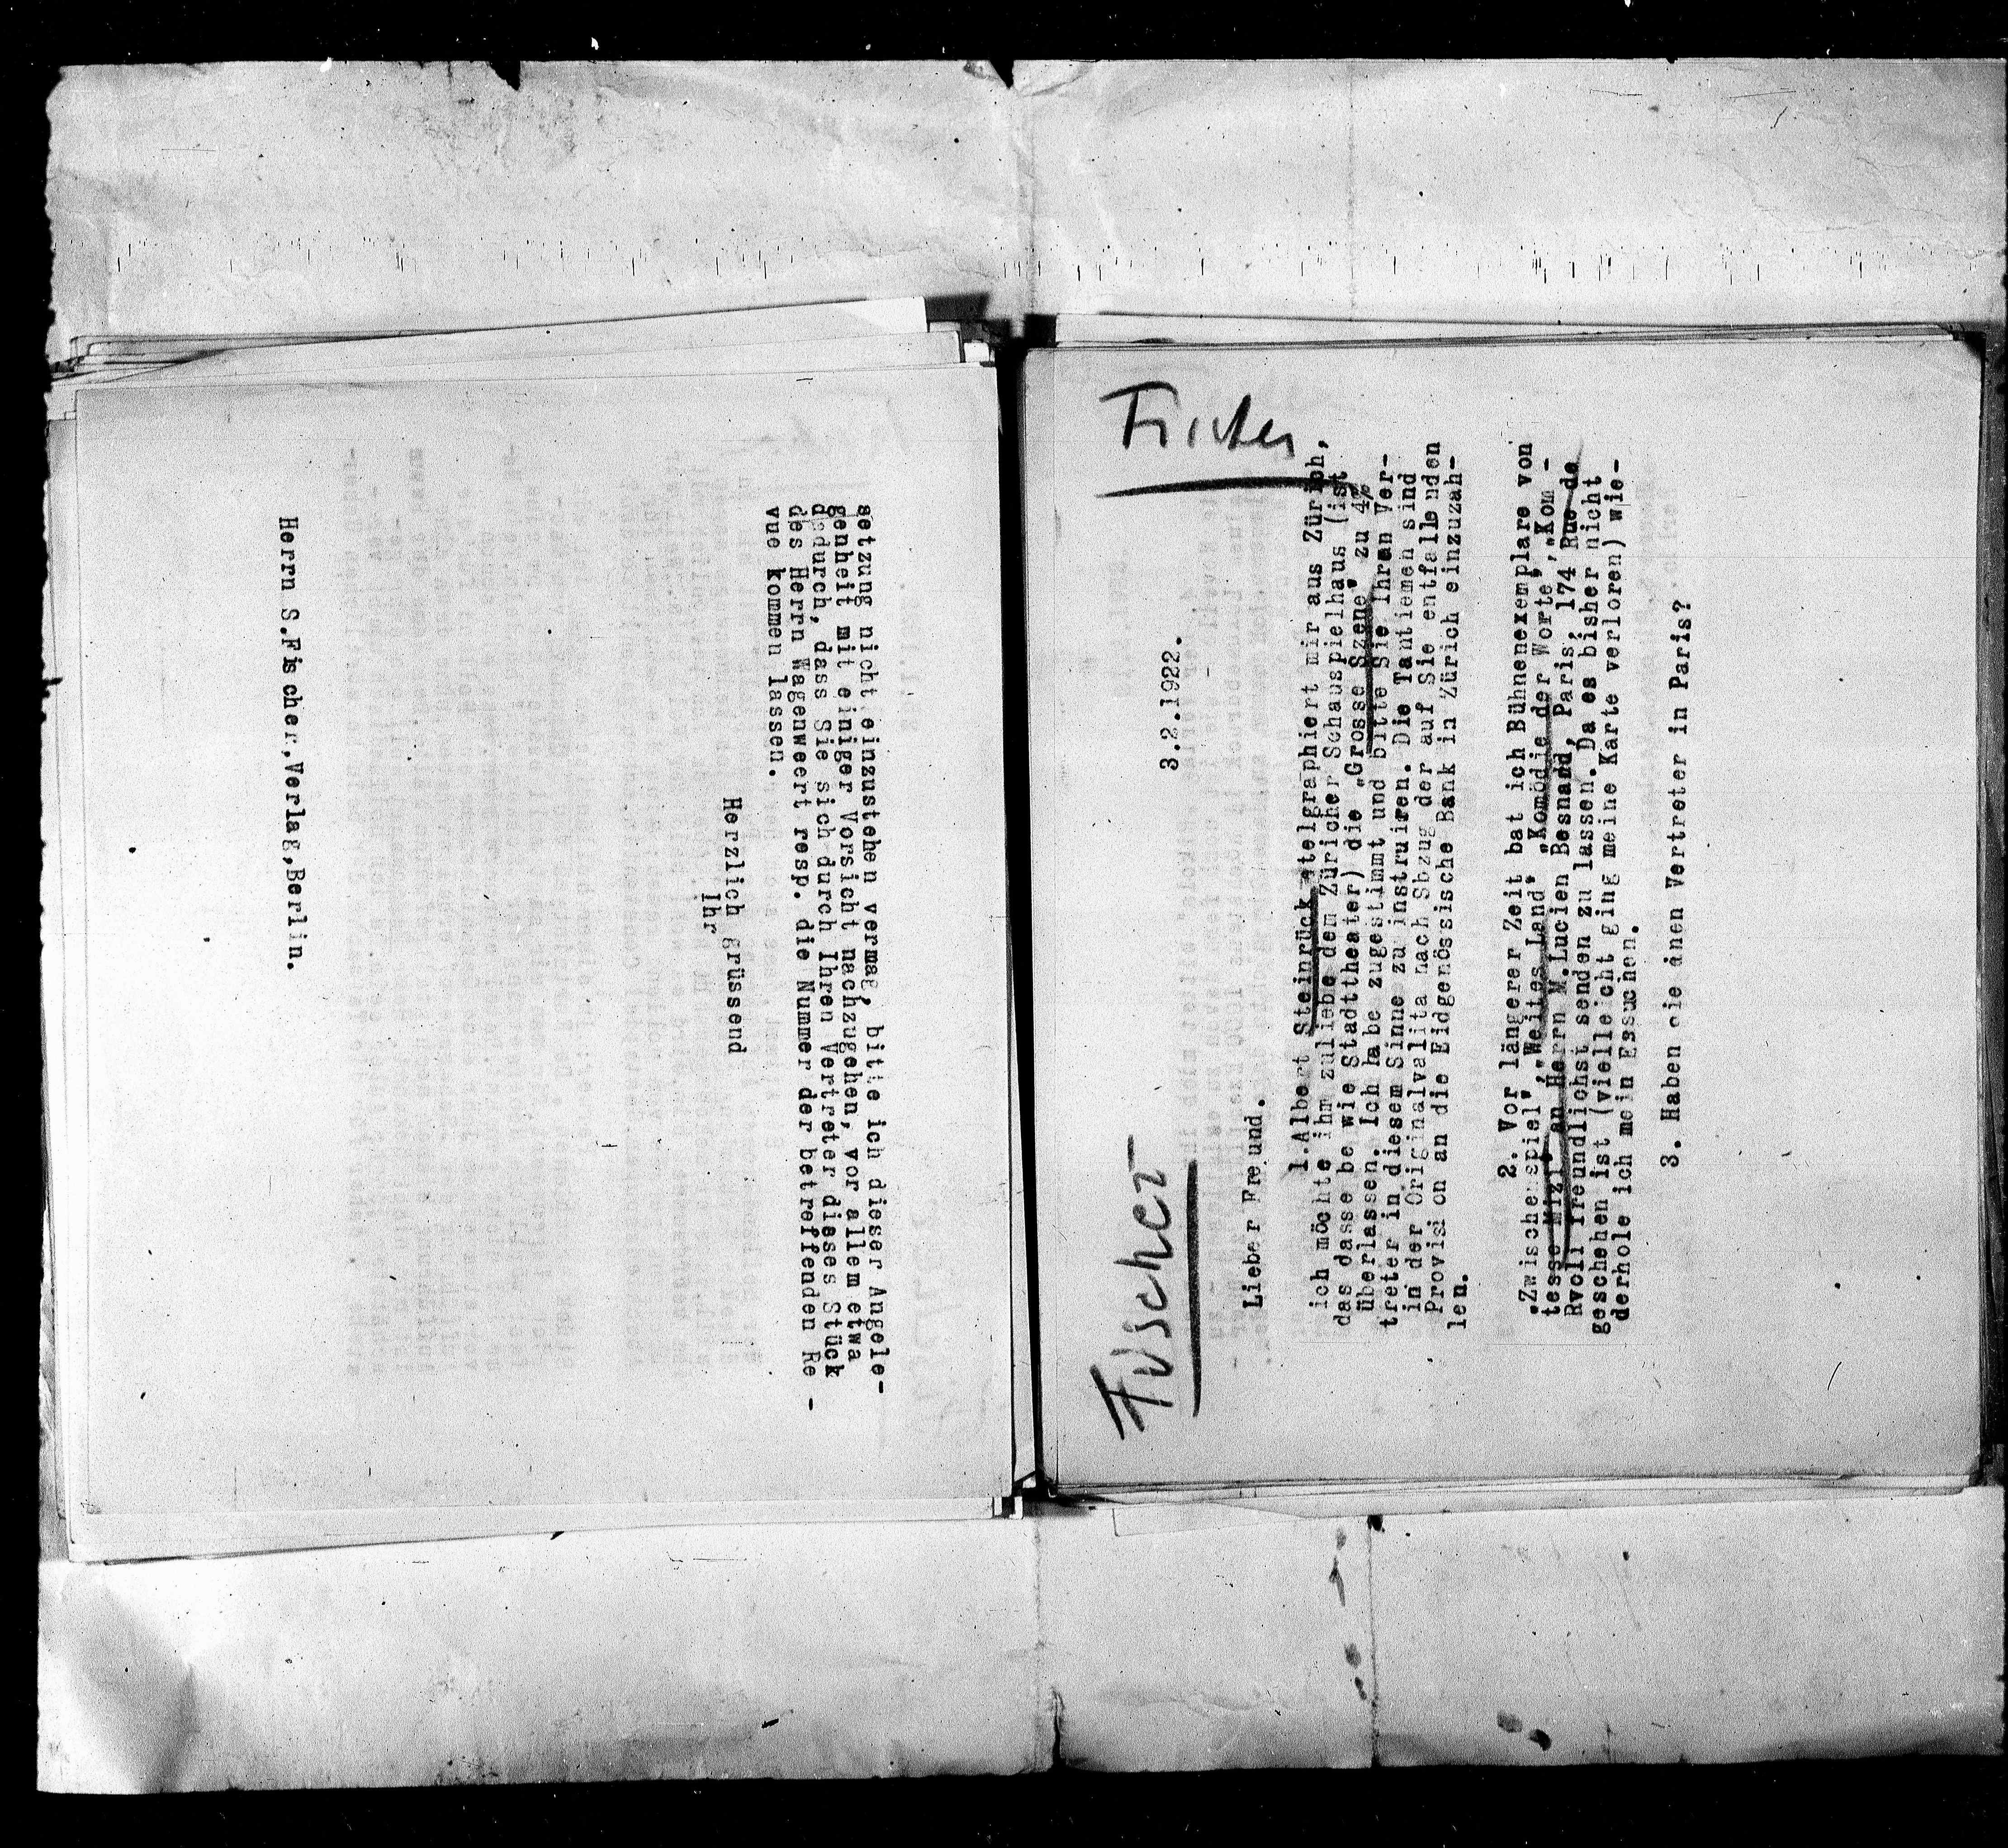 setzung nicht einzustehen vermag, bitte ich dieser Angele-
genheit mit einiger Vorsicht nachzugehen, vor allem etwa
dadurch, dass Sie sich durch Ihren Vertreter dieses Stück
des Herrn Wagenweert resp. die Nummer der betreffenden Re -
vue kommen lassen.
Herzlich grüssend
Ihr
Herrn S.Fischer,Verlag,Berlin.
Fischer
3.2.1922.
Lieber Freund.
1.Albert Steinrück telgraphiert mir aus Zürich,
ich möchte ihm zuliebe dem Züricher Schauspielhaus (ist
das dasse be wie Stadttheater) die „Grosse Szene" zu 4%
überlassen. Ich habe zugestimmt und bitte Sie Ihren Ver-
treter in diesem Sinne zu instruiren. Die Tantiemen sind
in der Originalvalita nach Sbzug der auf Sie entfallenden
Provision an die Eidgenössische Bank in Zürich einzuzah-
len.
2. Vor längerer Zeit bat ich Bühnenexemplare von
„Zwischenspiel","Weites Land", „Komödie der Worte","Kom -
tesse Mizi" an Herrn M.Lucien Besnard, Paris, 174 Rue de
Rvoli freundlichst senden zu lassen. Da es bisher nicht
geschehen ist (vielleicht ging meine Karte verloren) wie-
derhole ich mein Essuchen.
3. Haben sie einen Vertreter in Paris?